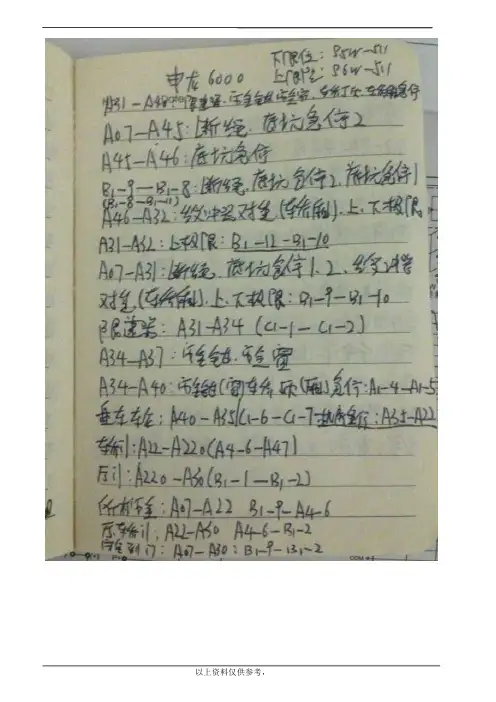 下限位：85W-511
申龙6000 上限位：86W-511
A31-A48 限速器、安全钳
A07-A45：断绳、底坑急停2
A45-A46：底坑急停
B1-9-B1-8：断绳、底坑急停2、底坑急停1
(B1-8-B1-11)
A46-A32：缓冲器对重、(轿厢)、上、下极限
A31-A32：上极限：B1-12-B1-10
A07-A31：断绳、底坑急停1、2、缓冲器
对重、(轿厢)、上、下极限：B1-9-B1-10
限速器：A31-A34 (C1-1-C1-2)
A34-A37：安全钳、安全窗
A34-A40：安全钳(窗)轿 急停：A1-4-A1-5
A40-A35(C1-6-C1-7 急停：A35-A22
轿门：A22-A220(A4-6-A47)
厅门：A220-A50(B1-1-B1-2)
所有安全：A07-A22 B1-9-A4-6
厅轿门：A22-A50 A4-6-B1-2
安全到门：A07-A50：B1-9-B1-2
以上资料仅供参考，